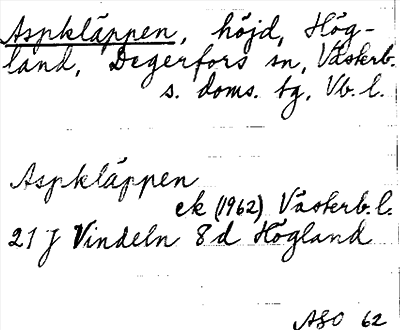 Aspkläppen, höjd, Hög-
land, Degerfors sn, Västerb.
s. doms. tg, Vb. l.
Aspkläppen
ek (1962) Västerb. l.
21 J Vindeln 8d Högland
ASO 62